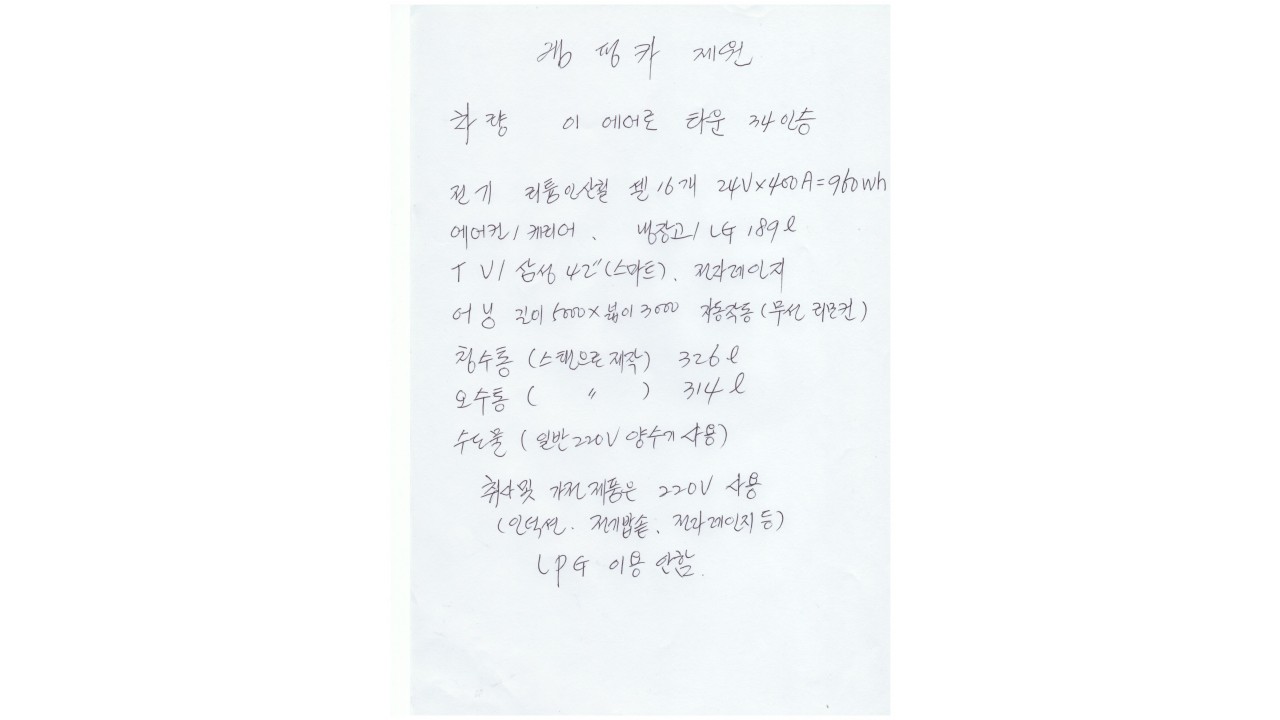 캠핑카 제원
차량 이 에어로 타운 34인승
전기 리튬인산철 셀 16개 24V×400A=960wh
에어컨/캐리어. 냉장고/LG 189ℓ
TV/삼성 42"(스마트). 전자레인지
어닝 길이 5000×넓이 3000 자동작동(무선 리모컨)
청수통 (스텐으로 제작) 326ℓ
오수통 ( 〃 ) 314ℓ
수도물 (일반 220V 양수기 사용)
취사및 가전제품은 220V 사용
(인덕션. 전기밥솥. 전자레인지 등)
LPG 이용 안함.